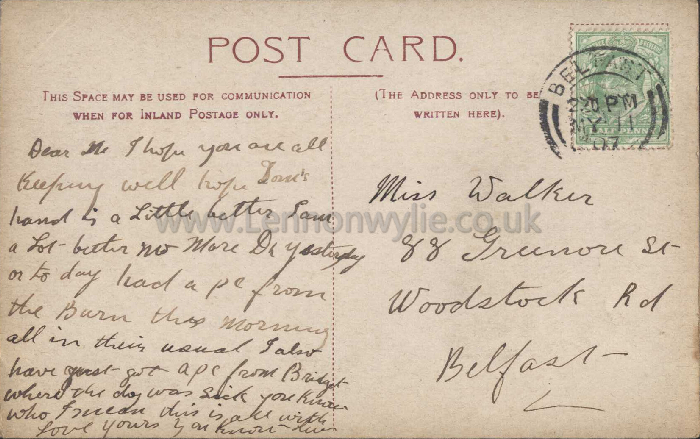 POST CARD.
THIS SPACE MAY BE USED FOR COMMUNICATION
WHEN FOR INLAND POSTAGE ONLY.
(THE ADDRESS ONLY TO BE
WRITTEN HERE).
BELFAST
PM
MY 11
07
HALFPENNY
Dear I hope you are all
Keeping well hope Tom's
hand is a Little better I am
a Lot better no More Dr yesterday
or to day had a pc from
the Burn this morning
all in their usual I also
have just got a pc from Bridget
where the dog was sick you know
who I mean this is all with
Love yours you know
Miss Walker
88 Greenore St
Woodstock Rd
Belfast
www.Lennonwylie.co.uk